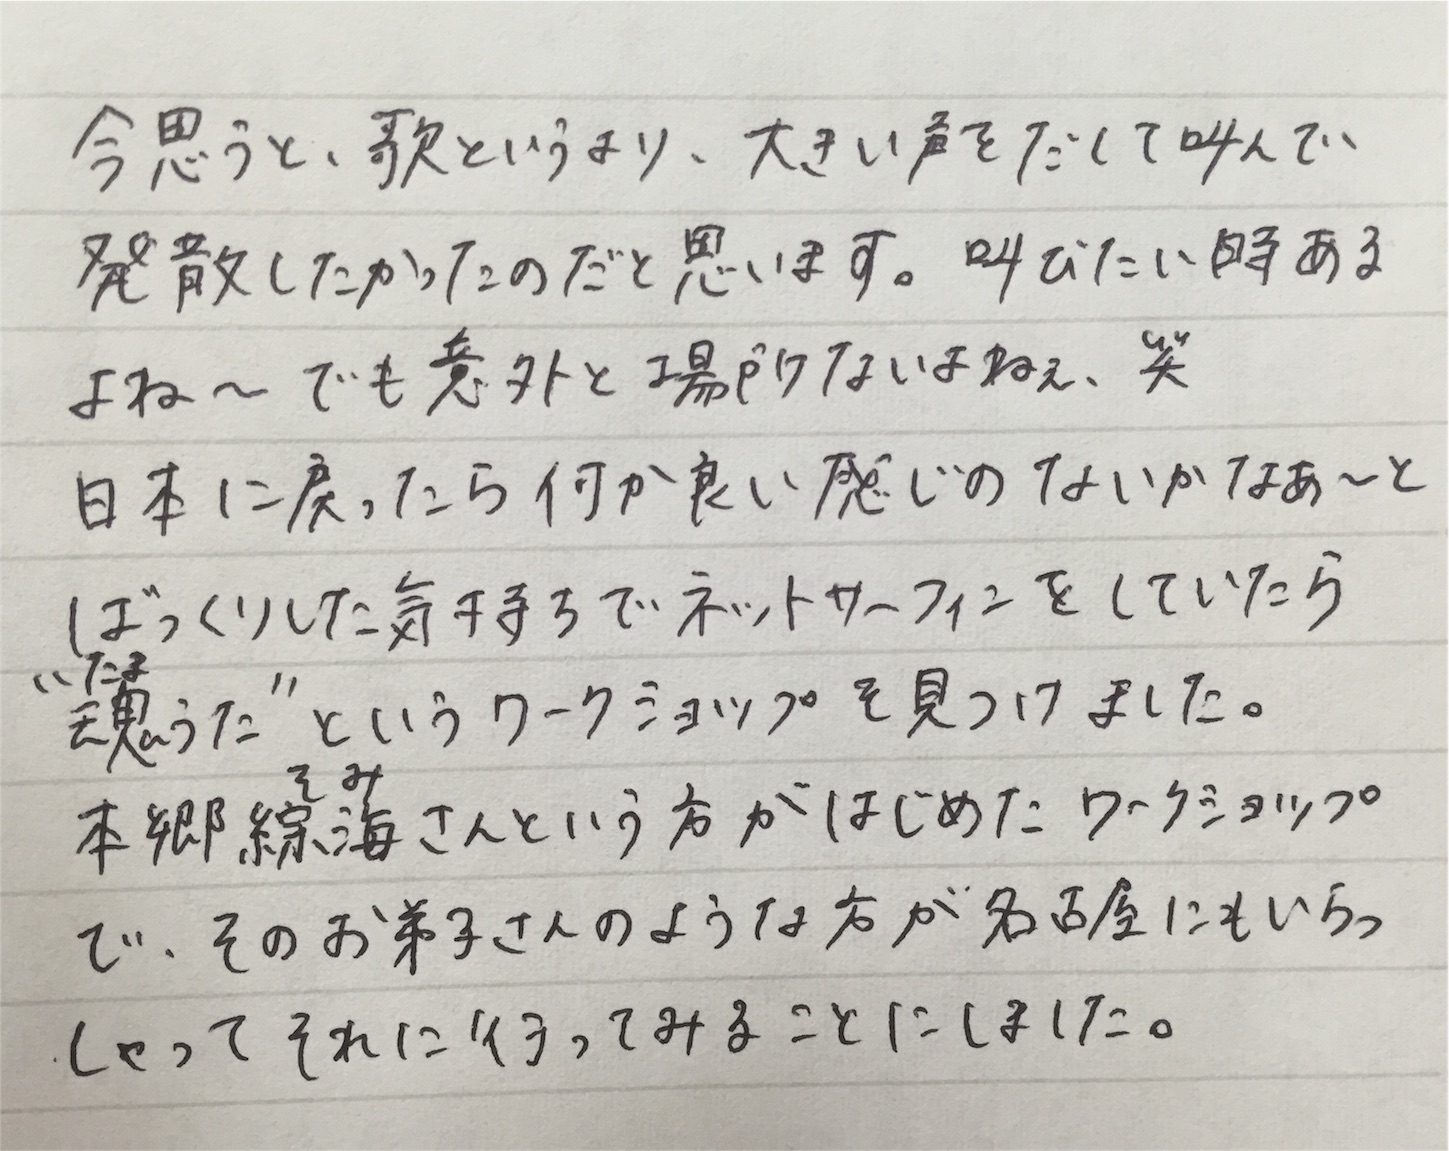 今思うと、歌というより、大きい声をだして叫んで、
発散したかったのだと思います。叫びたい時ある
よね〜でも意外と場所ないよねぇ、笑
日本に戻ったら何か良い感じのないかなぁ〜と
ばっくりした気持ちでネットサーフィンをしていたら
たま
“魂うた”というワークショップを見つけました。
そみ
本郷綜海さんという方がはじめたワークショップ
で、そのお弟子さんのような方が名古屋にもいらっ
しゃってそれに行ってみることにしました。